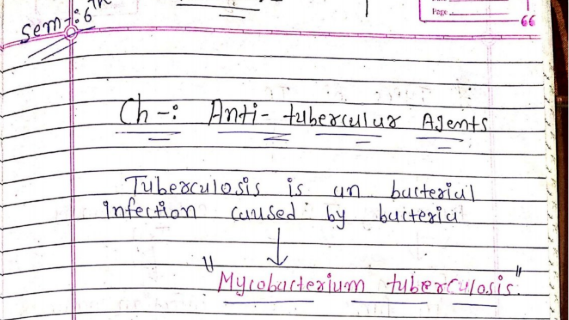 Sem-: 6th
Page
66
Ch-: Anti-tubercular Agents
Tuberculosis is an bacterial
infection caused by bacteria
↓
"Mycobacterium tuberculosis."